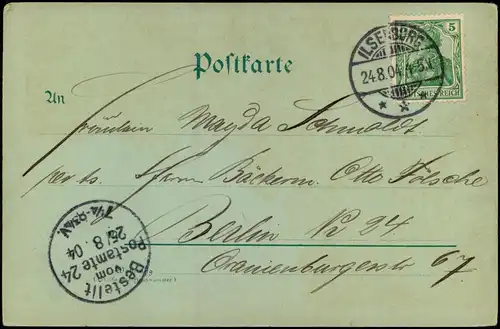 5
ILSENBURG
24.8.04. 4-5 N.
DEUTSCHES REICH
Postkarte
An
Fräulein Magda Schmoldt.
per ts. Herrn Bäckerm. Otto Fölsche
Berlin N 24
Oranienburgerstr 67
Bestellt
vom
Postamte 24
25/8.04